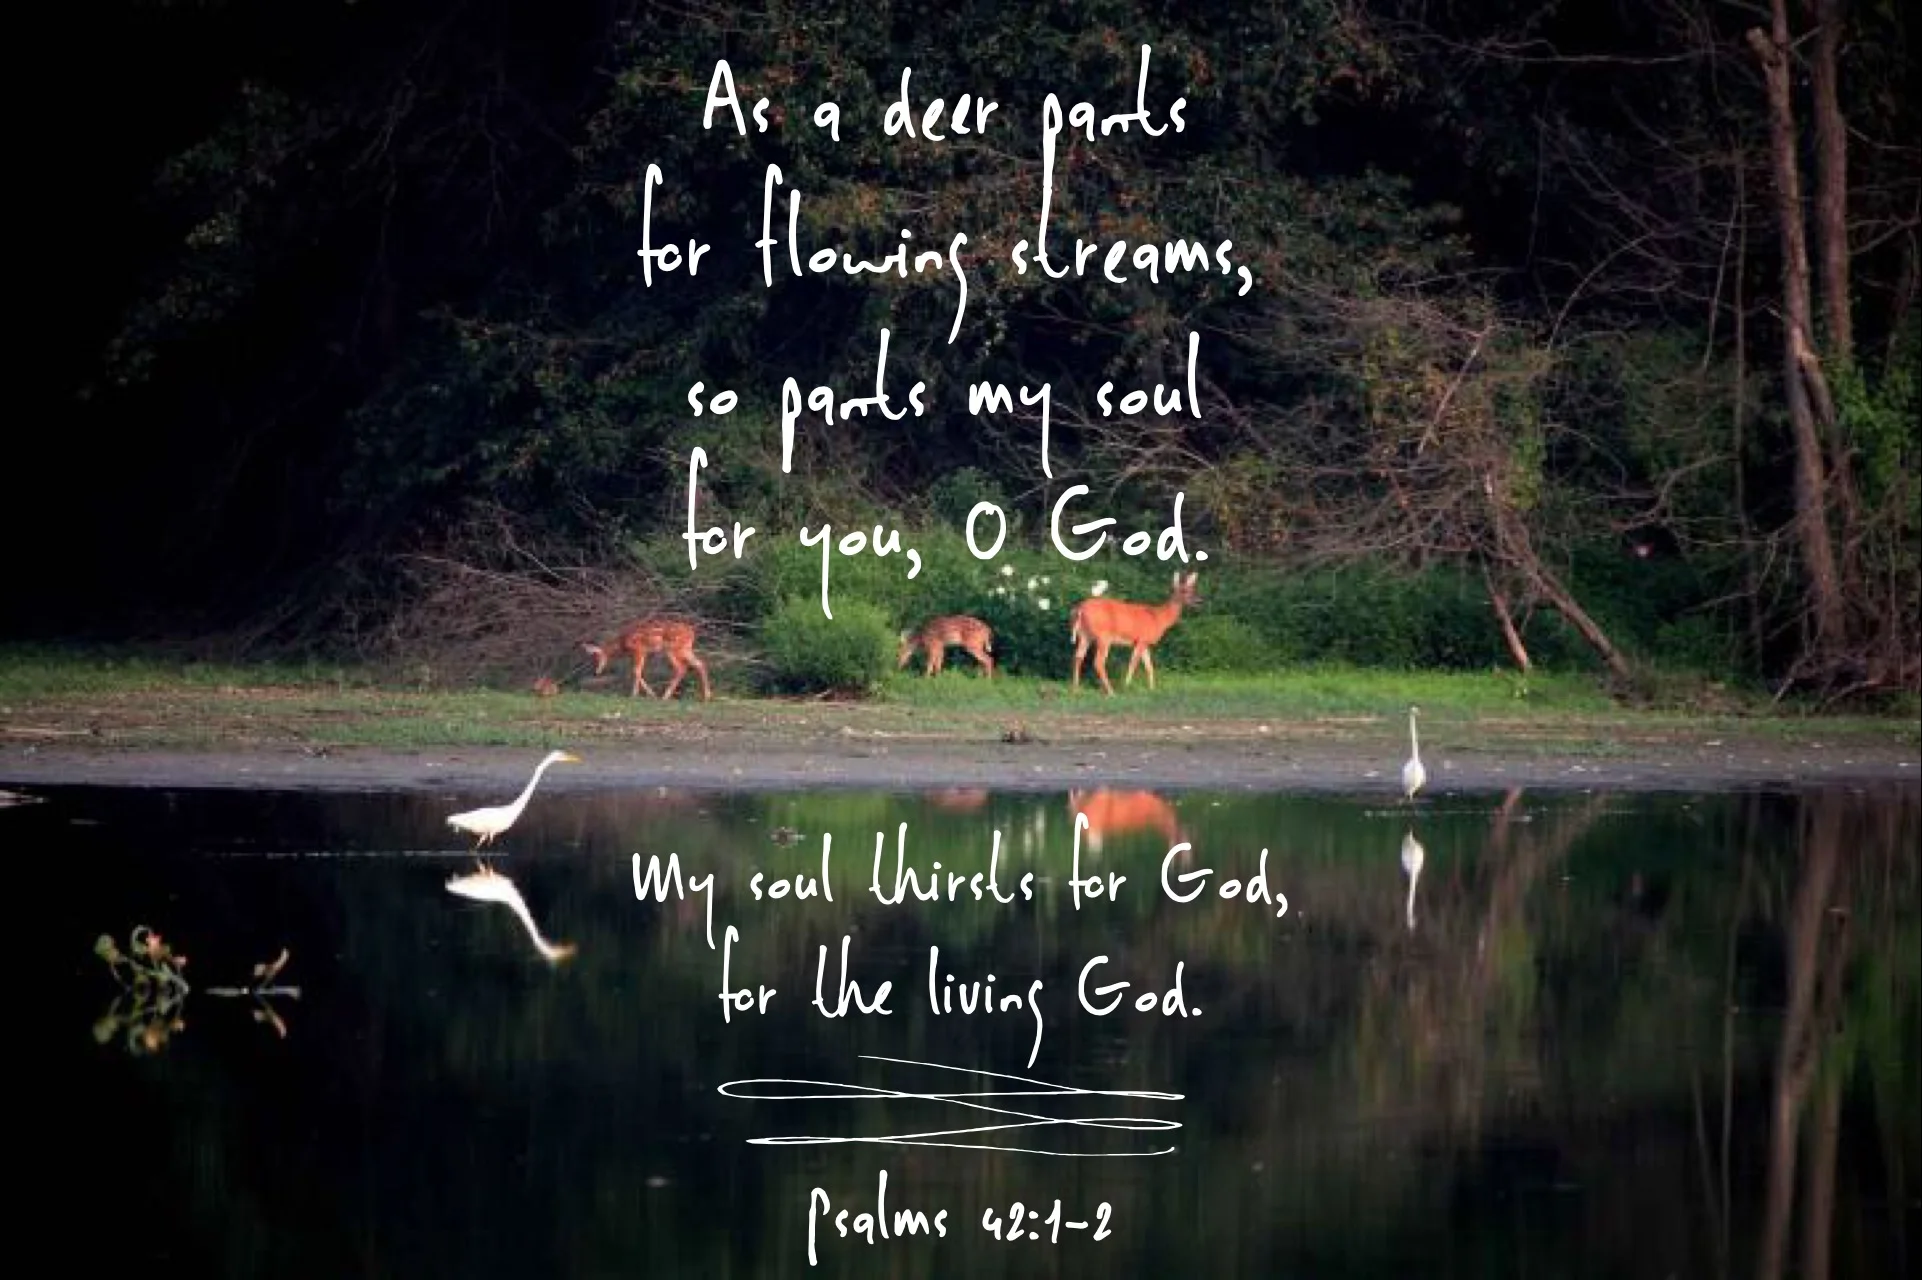 As a deer pants
for flowing streams,
so pants my soul
for you, O God.
My soul thirsts for God,
for the living God.
Psalms 42:1-2